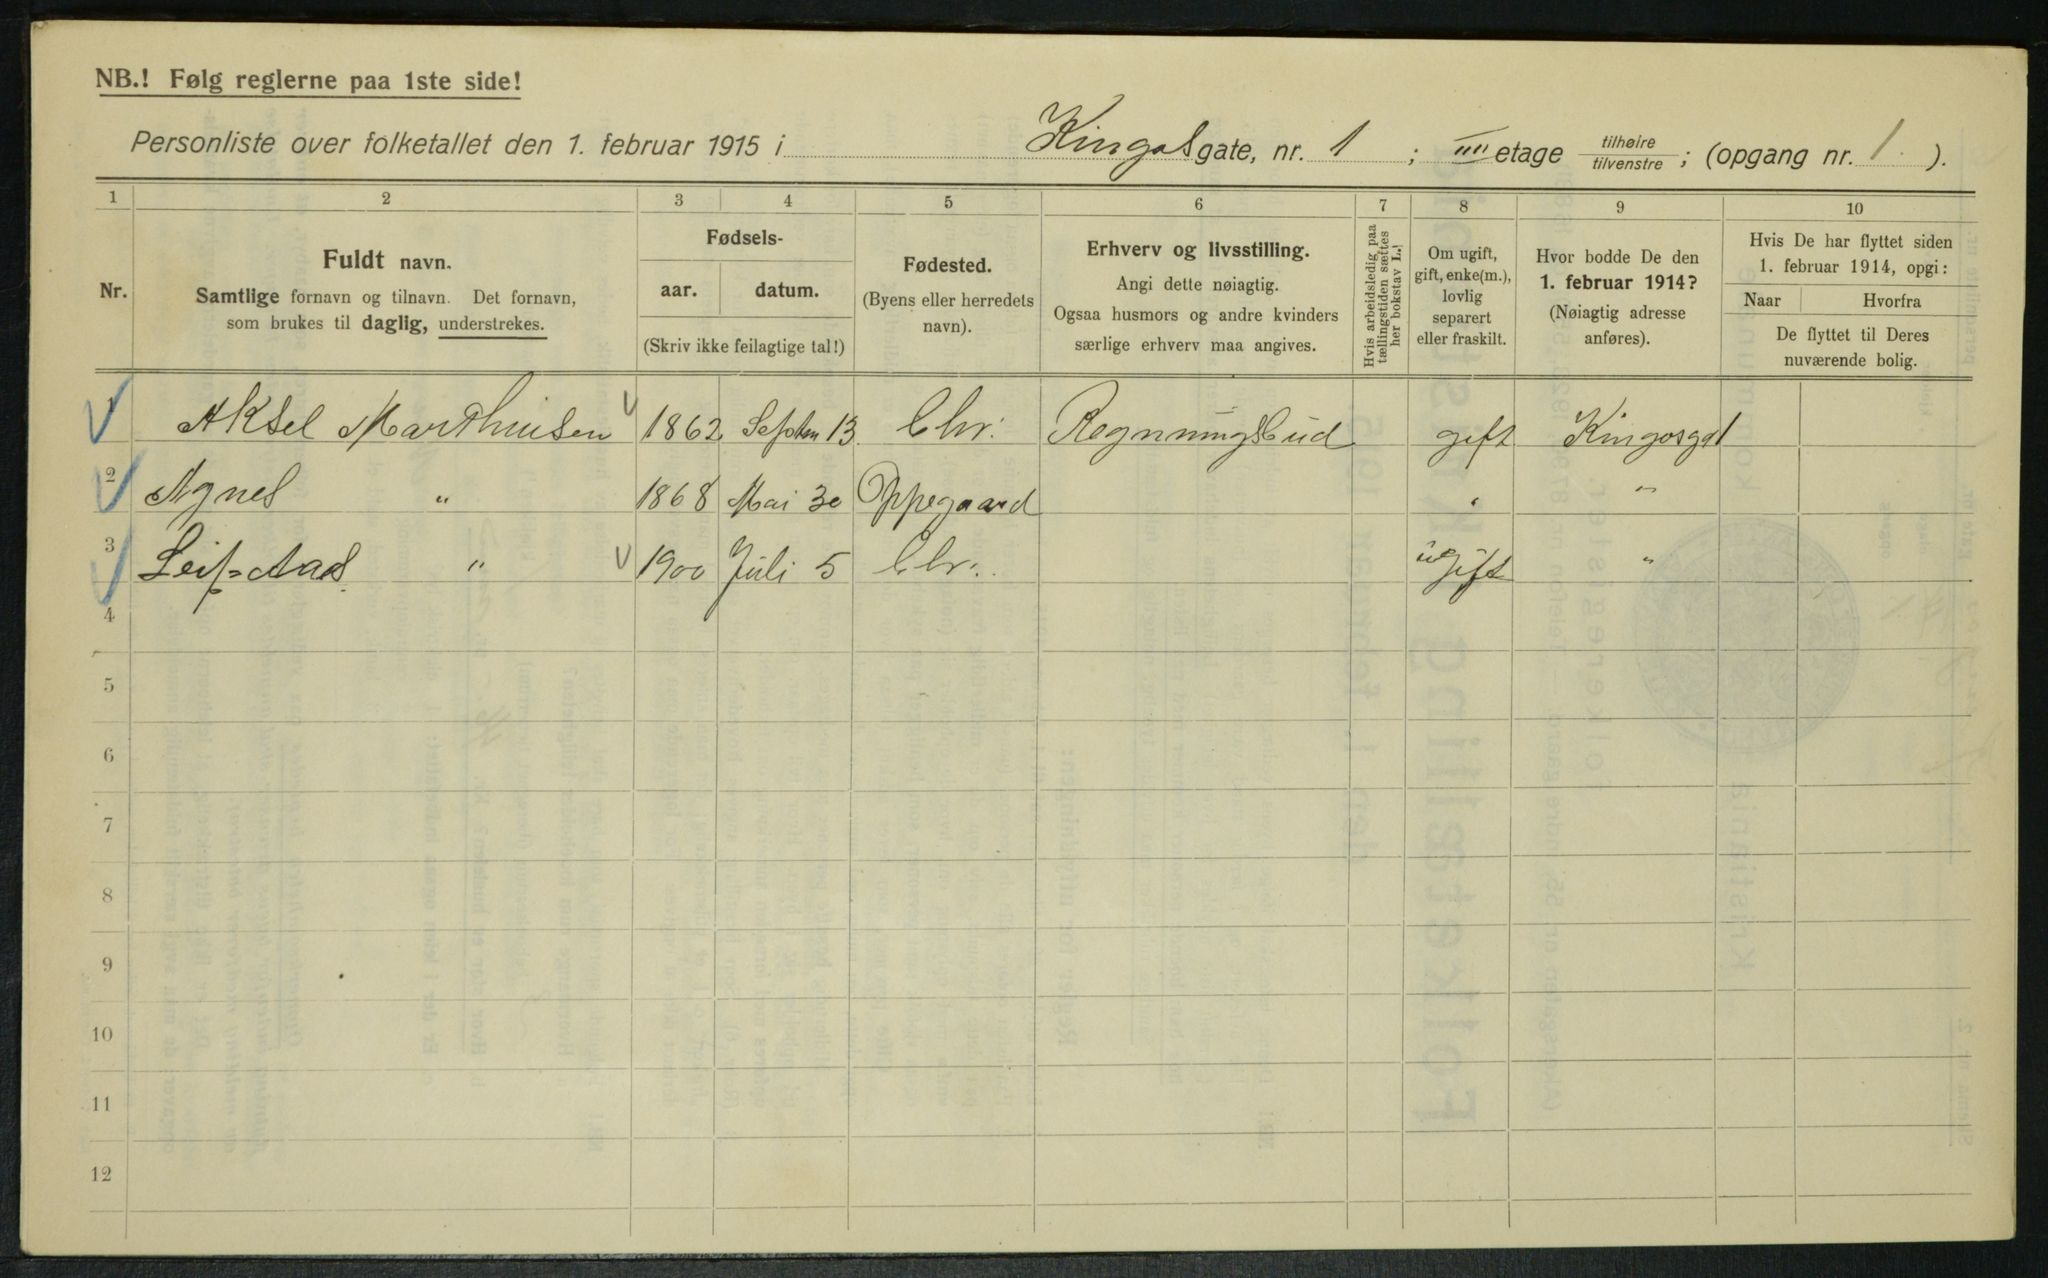 NB.! Følg reglerne paa 1ste side!
Personliste over folketallet den 1. februar 1915 i Kingosgate, nr. 1 ; III etage tilhøire / tilvenstre ; (opgang nr. 1. ).
1 2 3 4 5 6 7 8 9 10
Nr.
Fuldt navn.
Samtlige fornavn og tilnavn. Det fornavn,
som brukes til daglig, understrekes.
Fødsels-
aar. datum.
(Skriv ikke feilagtige tal!)
Fødested.
(Byens eller herredets
navn).
Erhverv og livsstilling.
Angi dette nøiagtig.
Ogsaa husmors og andre kvinders
særlige erhverv maa angives.
Hvis arbeidsledig paa
tællingstiden sættes
her bokstav L.!
Om ugift,
gift, enke(m.),
lovlig
separert
eller fraskilt.
Hvor bodde De den
1. februar 1914?
(Nøiagtig adresse
anføres).
Hvis De har flyttet siden
1. februar 1914, opgi:
Naar Hvorfra
De flyttet til Deres
nuværende bolig.
1 Aksel Marthinsen 1862 Septem 13. Chr. Regningsbud gift Kingosgt 1
2 Agnes " 1868 Mai 30 Oppegaard " "
3 Leif " 1900 Juli 5 Chr. ugift "
4
5
6
7
8
9
10
11
12